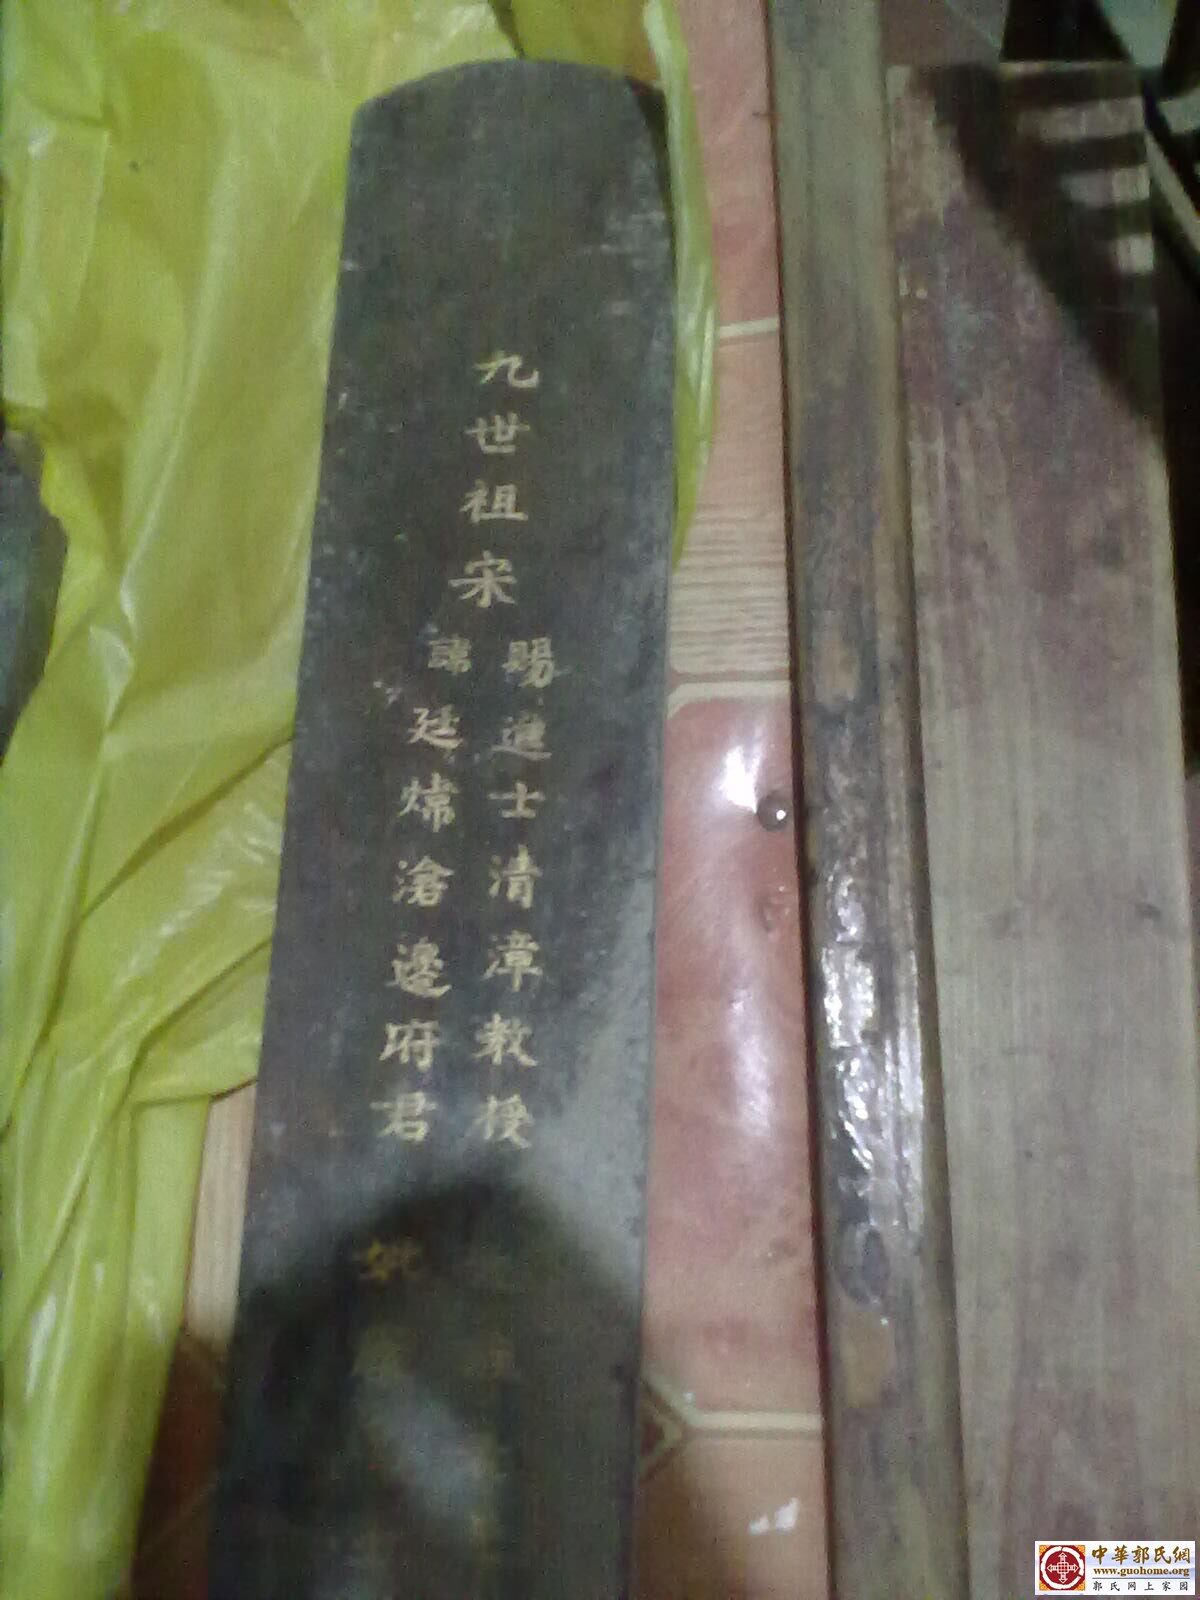 九世祖宋
賜進士清漳教授
諱廷煒滄邊府君
妣
中華郭氏網
www.guohome.org
郭氏网上家园